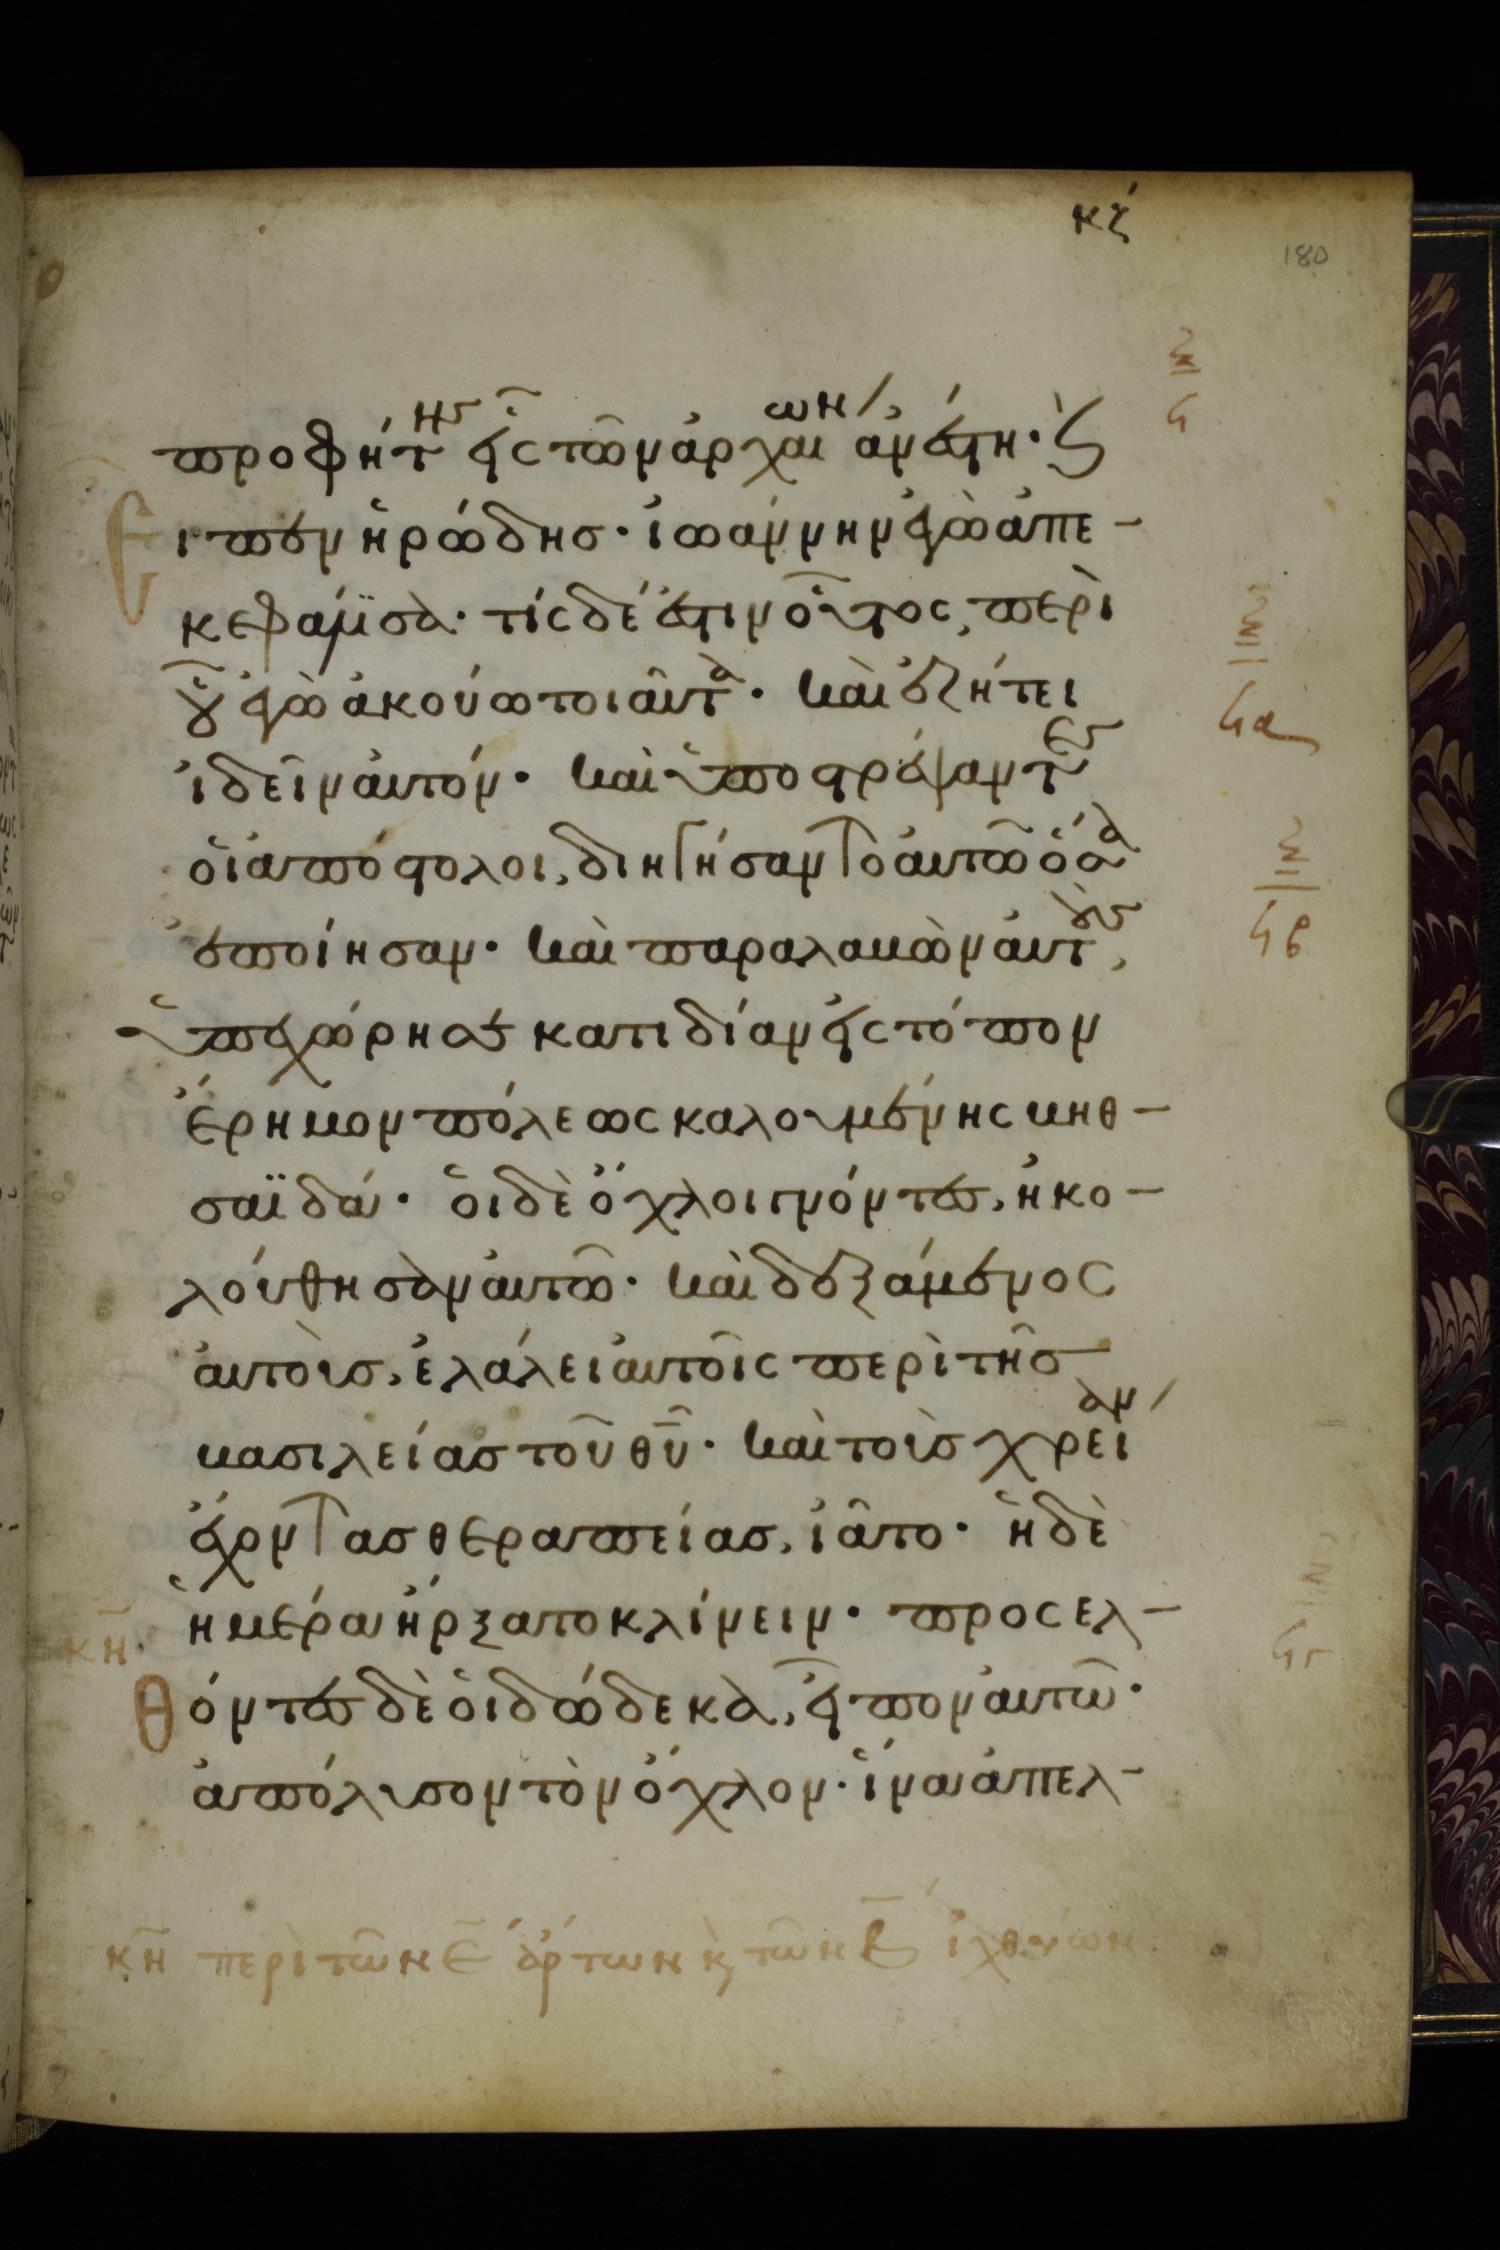 κζ
180
προφήτης εἷς τῶν ἀρχαίων ἀνέστη·
Εἶπεν ἡρώδησ· ἰωάννην ἐγὼ ἀπε-
κεφάλϊσα· τίς δέ ἐστιν οὗτος, περὶ
οὗ ἐγὼ ἀκούω τοιαῦτα· καὶ ἐζήτει
ἰδεῖν αὐτόν· καὶ ὑποστρέψαντες
οἱ ἀπόστολοι, διηγήσαντο αὐτῶ ὅσα
ἐποίησαν· καὶ παραλαβὼν αὐτοὺς,
ὑπεχώρησε κατιδίαν εἰς τόπον
ἔρημον πόλεως καλουμένης βηθ-
σαϊδά· οἱ δὲ ὄχλοι γνόντες, ἠκο-
λούθησαν αὐτῶ· καὶ δεξάμενος
αὐτοὺσ, ἐλάλει αὐτοῖς περὶ τῆσ
βασιλείασ τοῦ θυ· καὶ τοὺσ χρείαν
ἔχοντασ θεραπείασ, ἰᾶτο· ἡ δὲ
ἡμέρα ἤρξατο κλίνειν· προσελ-
κη
θόντες δὲ οἱ δώδεκα, εἶπον αὐτῶ·
ἀπόλυσον τὸν ὄχλον· ἵνα ἀπελ-
κη περὶ τῶν ε ἄρτων κ τῶν β ἰχθύων